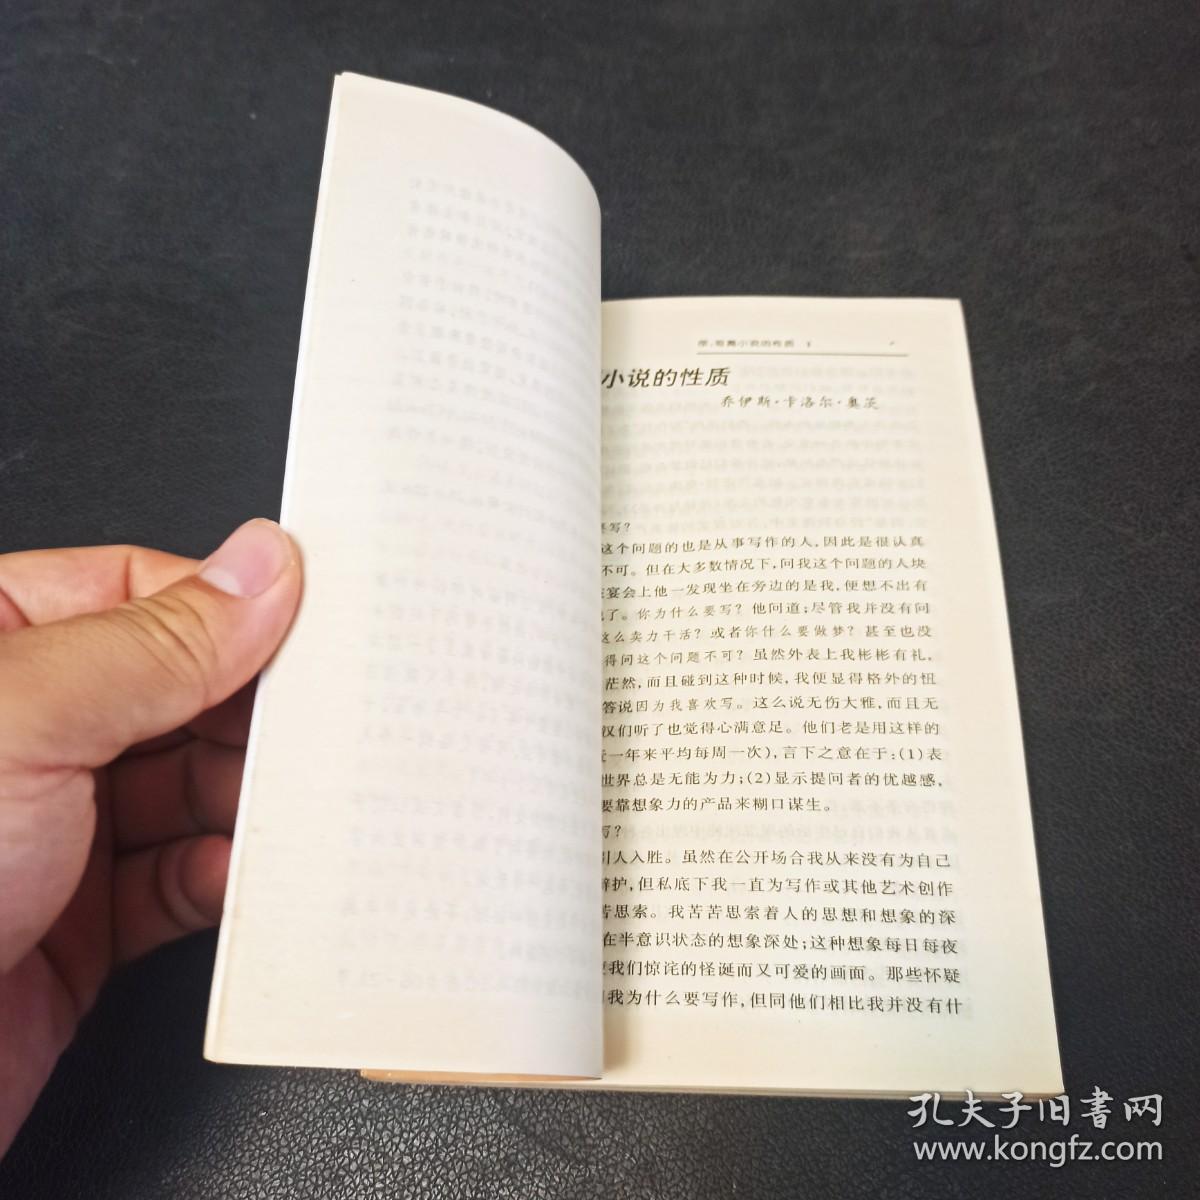 序:短篇小说的性质 1
小说的性质
乔伊斯·卡洛尔·奥茨
写?
这个问题的也是从事写作的人,因此是很认真
不可。但在大多数情况下,问我这个问题的人块
宴会上他一发现坐在旁边的是我,便想不出有
了。你为什么要写?他问道;尽管我并没有问
这么卖力干活?或者你什么要做梦?甚至也没
得问这个问题不可?虽然外表上我彬彬有礼,
茫然,而且碰到这种时候,我便显得格外的忸
答说因为我喜欢写。这么说无伤大雅,而且无
汉们听了也觉得心满意足。他们老是用这样的
近一年来平均每周一次),言下之意在于:(1)表
世界总是无能为力;(2)显示提问者的优越感,
要靠想象力的产品来糊口谋生。
写?
引人入胜。虽然在公开场合我从来没有为自己
辩护,但私底下我一直为写作或其他艺术创作
苦思索。我苦苦思索着人的思想和想象的深
在半意识状态的想象深处;这种想象每日每夜
我们惊诧的怪诞而又可爱的画面。那些怀疑
我为什么要写作,但同他们相比我并没有什
孔夫子旧书网
www.kongfz.com